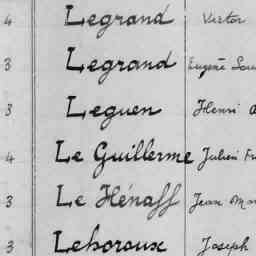 4 Legrand Victor
3 Legrand Eugène
3 Leguen Henri
4 Le Guillerme Julien
3 Le Hénaff Jean
3 Lehoroux Joseph